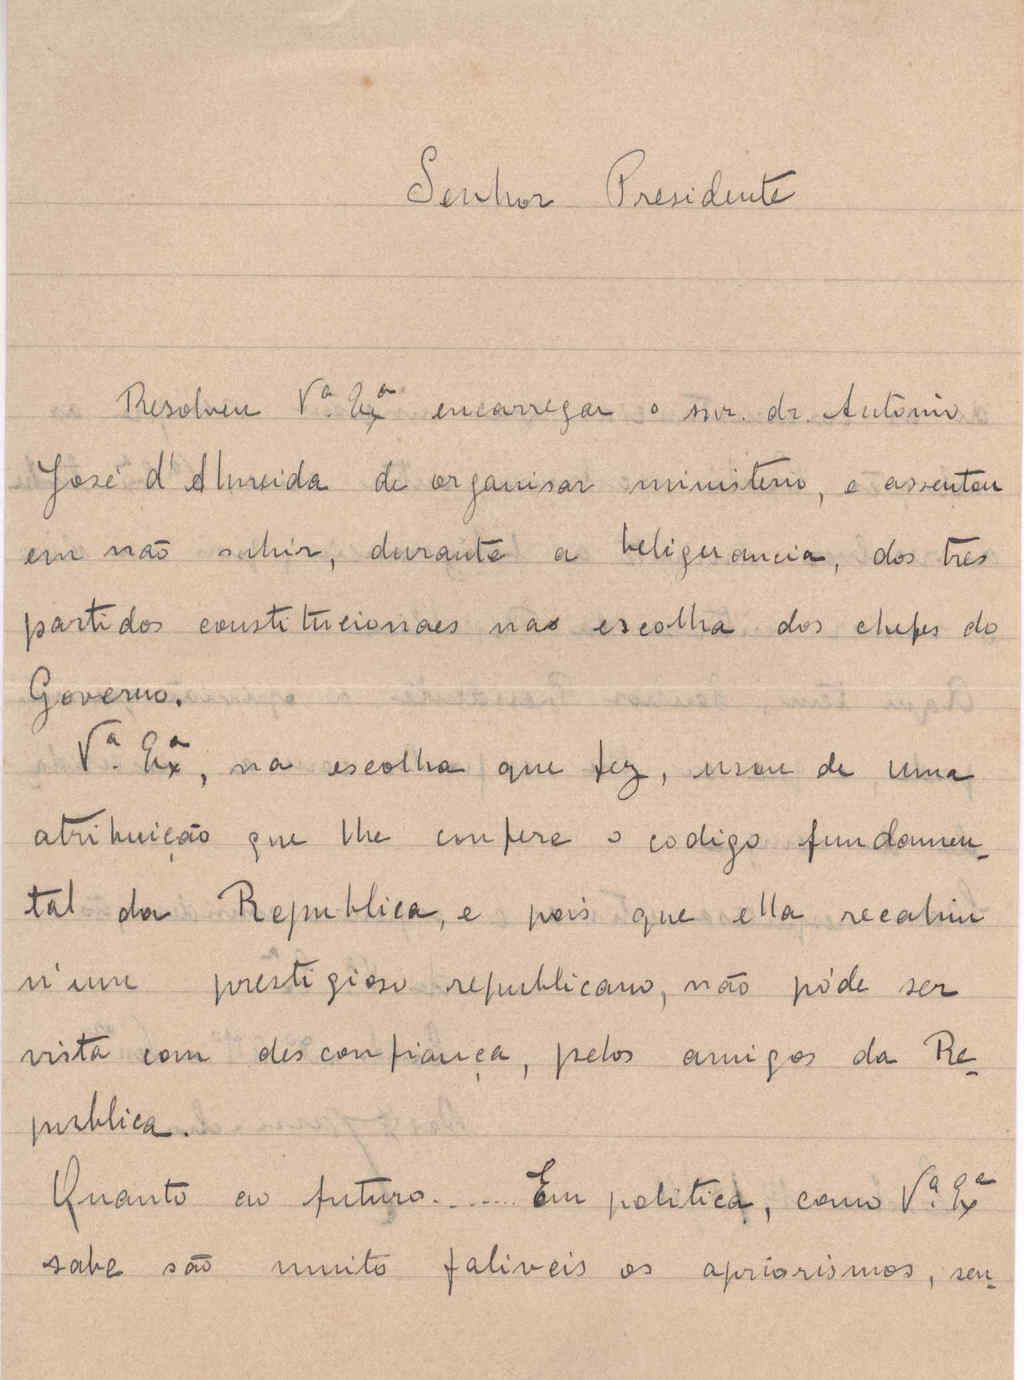 Senhor Presidente
Resolveu Vª. Exª encarregar o snr. dr. Antonio
José d'Almeida de organisar ministerio, e assentou
em não subir, durante a beligerancia, dos tres
partidos constitucionaes na escolha dos chefes do
Governo.
Vª. Exª, na escolha que fez, usou de uma
atribuição que lhe confere o codigo fundamen-
tal da Republica, e pois que ella recahiu
n'um prestigioso republicano, não póde ser
vista com desconfiança, pelos amigos da Re-
publica.
Quanto ao futuro....... Em politica, como Vª. Exª
sabe são muito faliveis os apriorismos, sen-